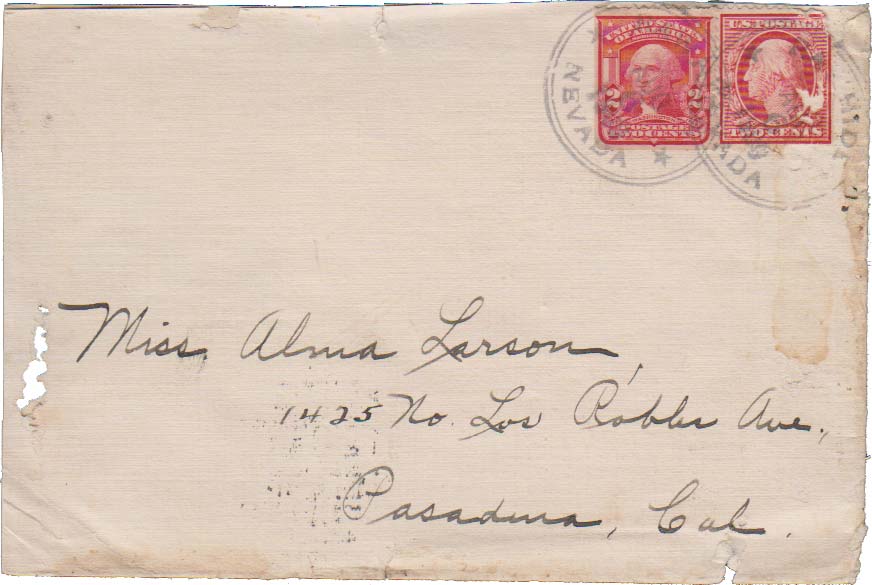 UNITED STATES OF AMERICA
2 2
POSTAGE
TWO CENTS
U.S. POSTAGE
TWO CENTS
NEVADA
Miss. Alma Larson
1425 No. Los Robles Ave.,
Pasadena, Cal.